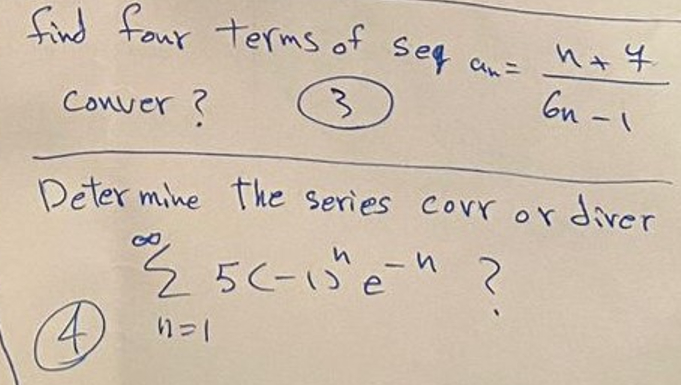 find four terms of seq aₙ = (n + 7)/(6n - 1)
conver ? ③
Determine the series covr or diver
∞
Σ 5(-1)ⁿ e⁻ⁿ ?
④ n=1